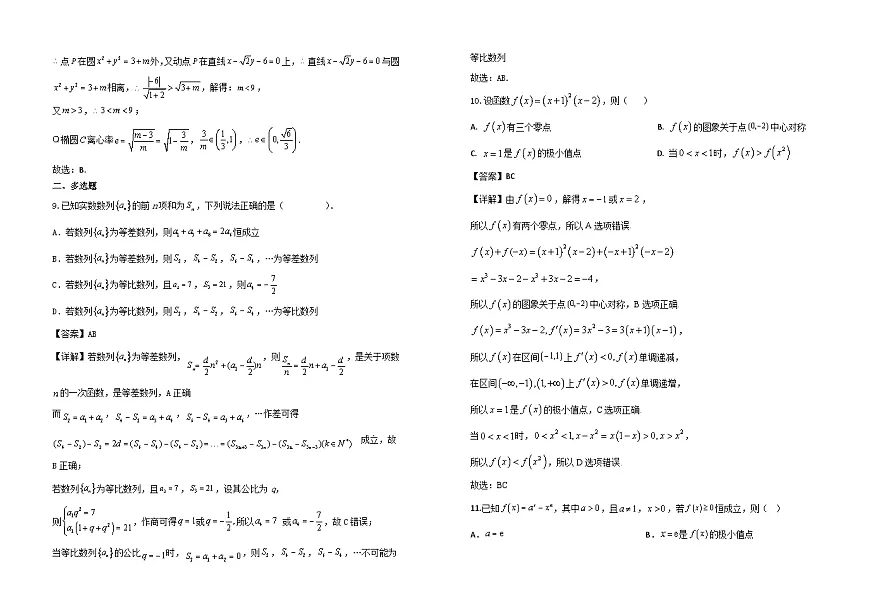 ∴ 点 P 在圆 x² + y² = 3 + m 外,又动点 P 在直线 x − √2y − 6 = 0 上,∴ 直线 x − √2y − 6 = 0 与圆
x² + y² = 3 + m 相离,∴ |−6|/√(1+2) > √(3+m),解得:m < 9,
又 m > 3,∴ 3 < m < 9;
Q 椭圆 C 离心率 e = √((m−3)/m) = √(1−3/m),3/m ∈ (1/3, 1),∴ e ∈ (0, √6/3).
故选:B.
二、多选题
9.已知实数数列{aₙ}的前 n 项和为 Sₙ,下列说法正确的是( ).
A.若数列{aₙ}为等差数列,则
恒成立
B.若数列{aₙ}为等差数列,则 S₂,S₄ − S₂,S₆ − S₄,…为等差数列
C.若数列{aₙ}为等比数列,且 a₃ = 7,S₃ = 21,则 a₄ = −7/2
D.若数列{aₙ}为等比数列,则 S₂,S₄ − S₂,S₆ − S₄,…为等比数列
【答案】AB
【详解】若数列{aₙ}为等差数列,Sₙ = d/2 n² + (a₁ − d/2)n,则 Sₙ/n = d/2 n + a₁ − d/2,是关于项数
n 的一次函数,是等差数列,A 正确
而 S₂ = a₁ + a₂,S₄ − S₂ = a₃ + a₄,S₆ − S₄ = a₅ + a₆,…作差可得
成立,故
B 正确;
若数列{aₙ}为等比数列,且 a₃ = 7,S₃ = 21,设其公比为 q,
则 {a₁q² = 7, a₁(1 + q + q²) = 21,作商可得 q = 1 或 q = −1/2,所以 a₄ = 7 或 a₄ = −7/2,故 C 错误;
当等比数列{aₙ}的公比 q = −1 时,S₂ = a₁ + a₂ = 0,则 S₂,S₄ − S₂,S₆ − S₄,…不可能为
等比数列
故选:AB.
10.设函数 f(x) = (x+1)²(x−2),则( )
A. f(x)有三个零点 B. f(x)的图象关于点(0,−2)中心对称
C. x = 1 是 f(x)的极小值点 D. 当 0 < x < 1 时,f(x) > f(x²)
【答案】BC
【详解】由 f(x) = 0,解得 x = −1 或 x = 2,
所以 f(x)有两个零点,所以 A 选项错误.
f(x) + f(−x) = (x+1)²(x−2) + (−x+1)²(−x−2)
= x³ − 3x − 2 − x³ + 3x − 2 = −4,
所以 f(x)的图象关于点(0,−2)中心对称,B 选项正确.
f(x) = x³ − 3x − 2, f′(x) = 3x² − 3 = 3(x+1)(x−1),
所以 f(x)在区间(−1,1)上 f′(x) < 0, f(x)单调递减,
在区间(−∞,−1),(1,+∞)上 f′(x) > 0, f(x)单调递增,
所以 x = 1 是 f(x)的极小值点,C 选项正确.
当 0 < x < 1 时,0 < x² < 1, x − x² = x(1−x) > 0, x > x²,
所以 f(x) < f(x²),所以 D 选项错误.
故选:BC
11.已知 f(x) = aˣ − xᵃ,其中 a > 0,且 a ≠ 1,x > 0,若 f(x) ≥ 0 恒成立,则( )
A.a = e B.x = e 是 f(x)的极小值点